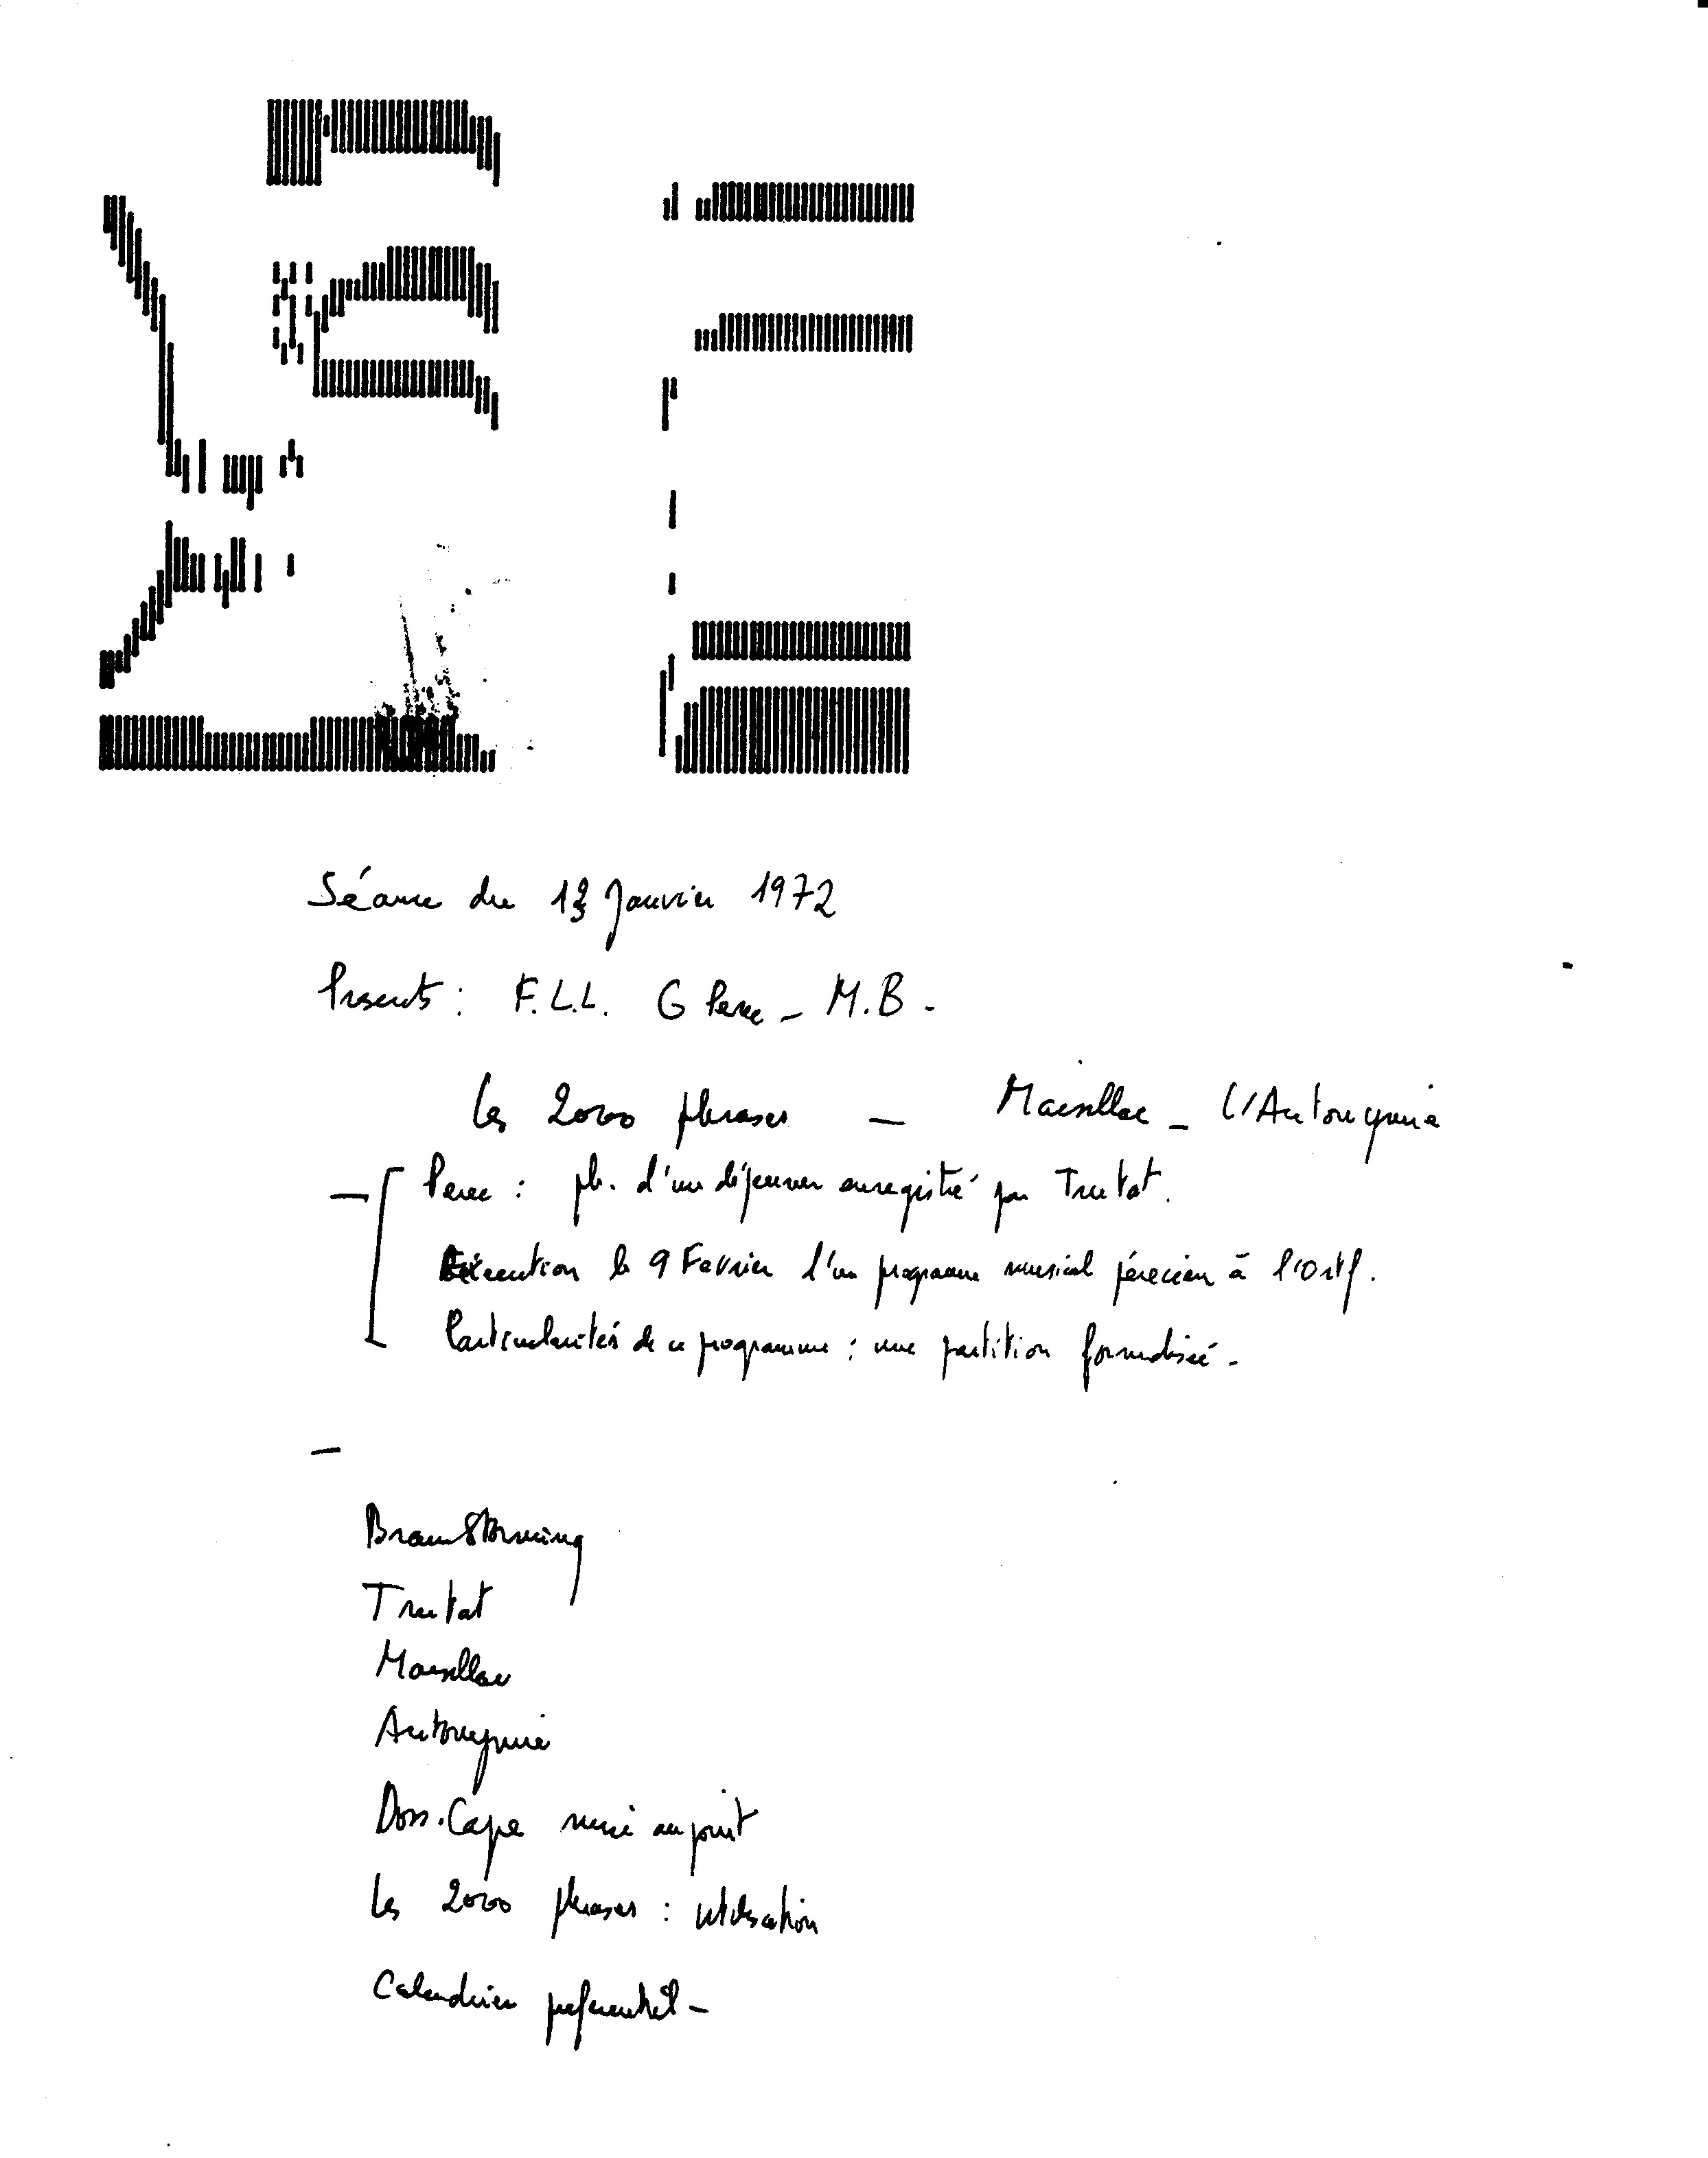 Séance du 13 Janvier 1972
Présents : F.L.L. G Perec - M.B -
Les 2000 phrases - Mainllac - L'Autonymie
- Perec : pb. d'un déjeuner enregistré par Trutat.
Exécution le 9 Février d'un programme musical pérecien à l'Ortf.
Particularités de ce programme : une partition formalisée -
-
BrainStorming
Trutat
Autonymie
Doss. Cape mise au point
Les 2000 phrases : utilisation
Calendrier préférentiel -